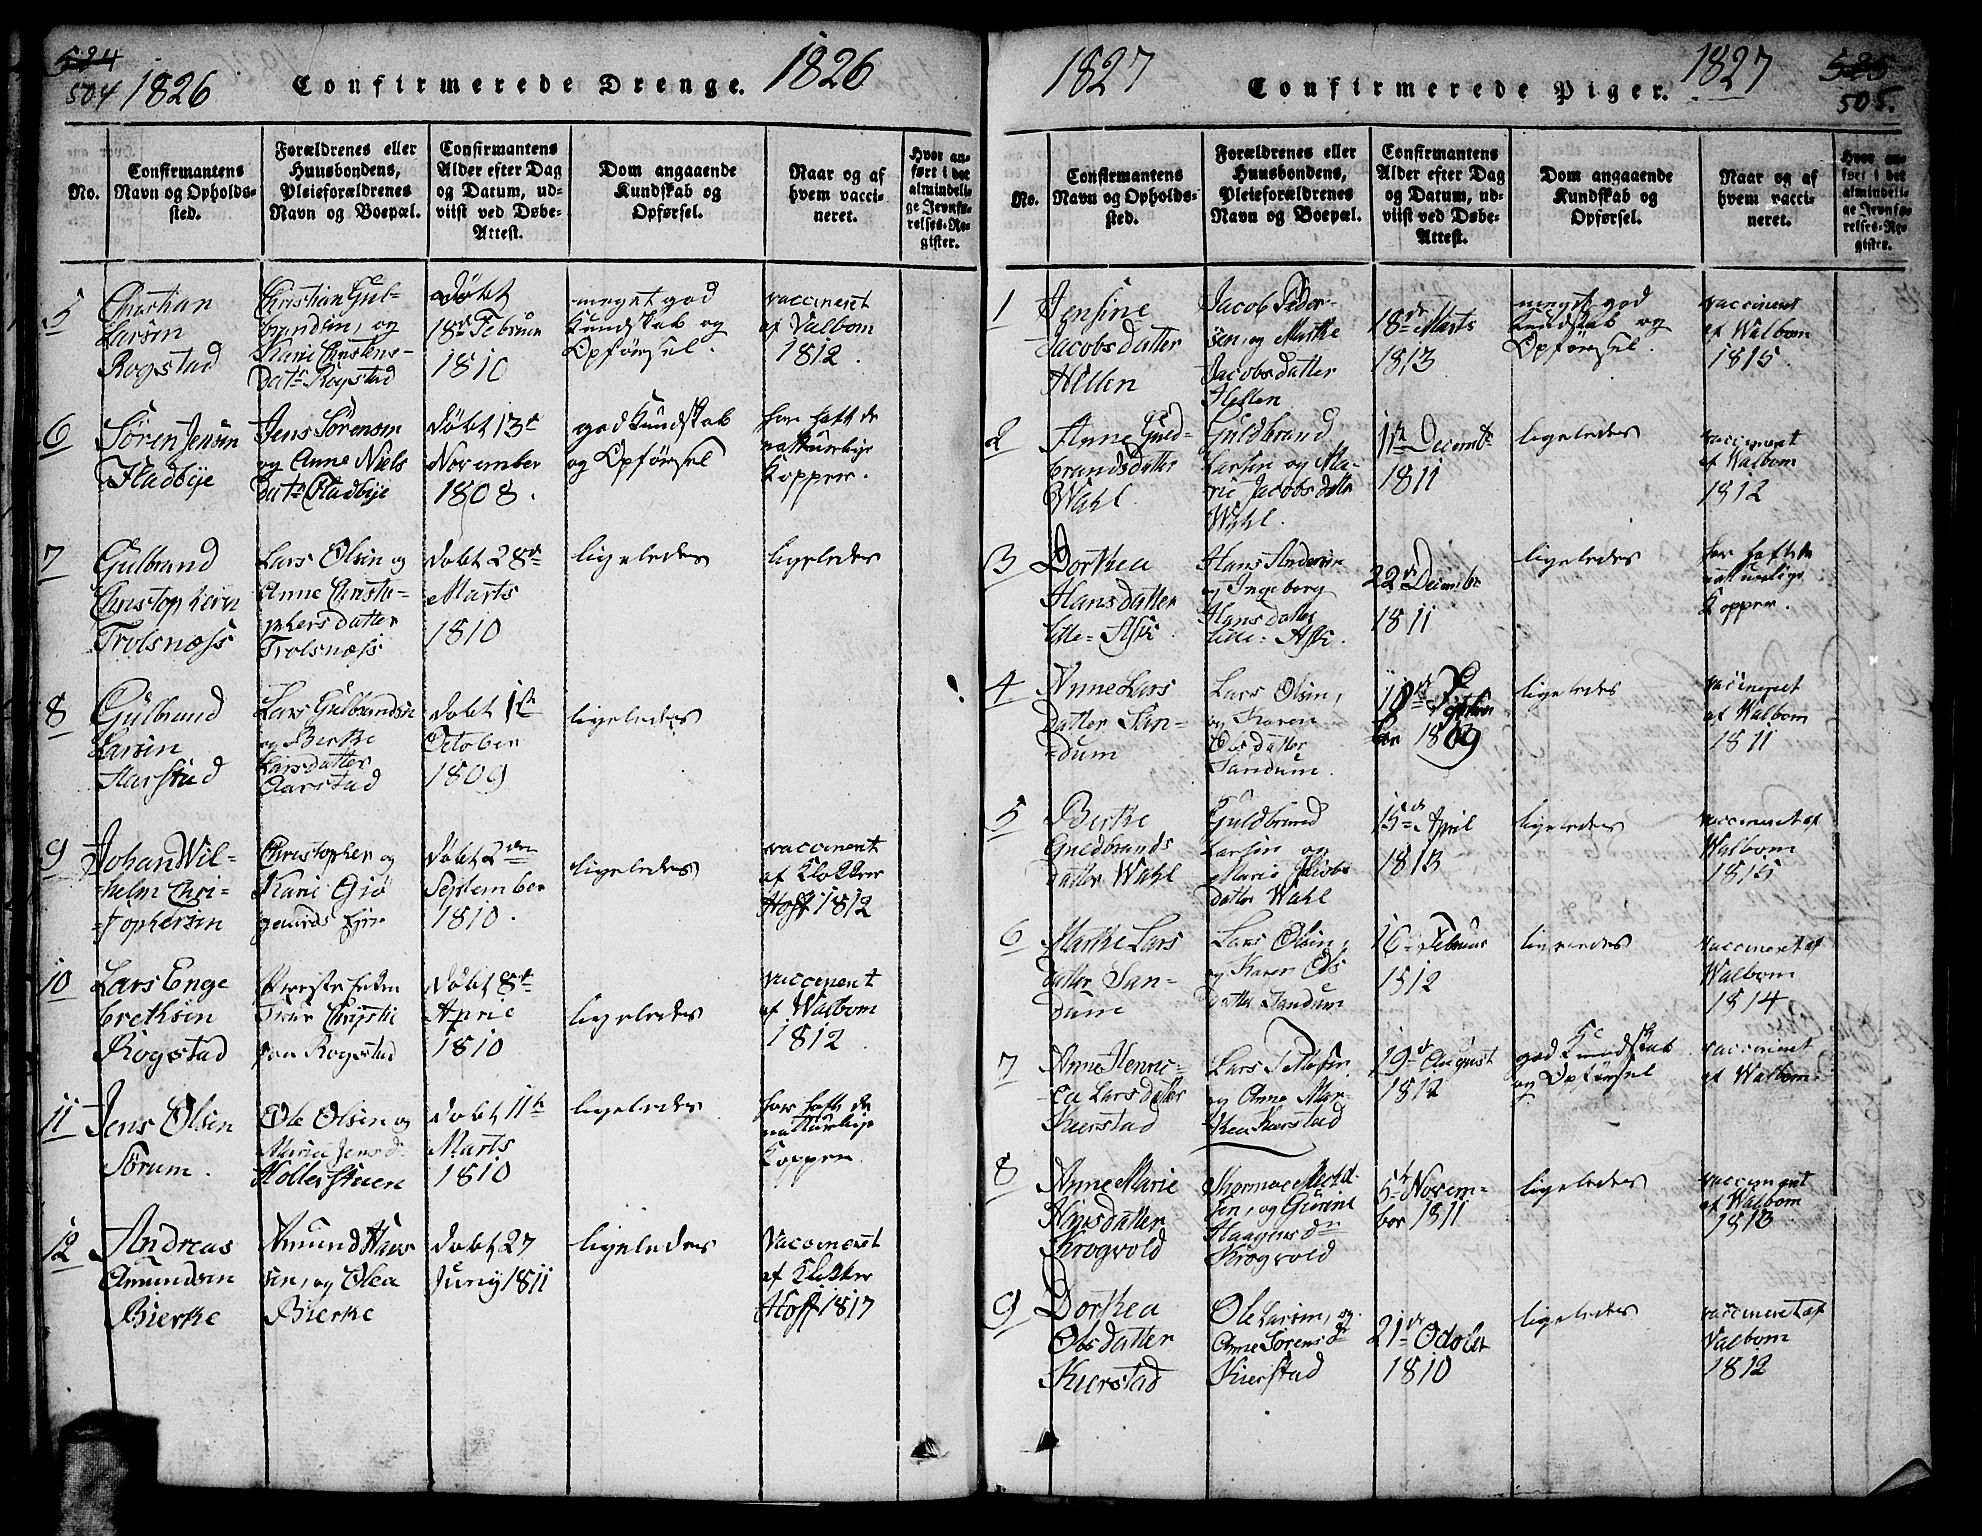 524
504
1826
Confirmerede Drenge.
1826
No.
Confirmantens
Navn og Opholds-
sted.
Forældrenes eller
Huusbondens,
Pleieforældrenes
Navn og Boepæl.
Confirmantens
Alder efter Dag
og Datum, ud-
viist ved Døbe-
Attest.
Dom angaaende
Kundskab og
Opførsel.
Naar og af
hvem vacci-
neret.
Hvor an-
ført i det
almindeli-
ge Jevnfø-
relses-Re-
gister.
5
Christian
Larsen
Rogstad
Christian Gul-
brandsen, og
Kari Christens-
Datr Rogstad
Døbt
18de Februar
1810
meget god
Kundskab og
Opførsel.
vaccineret
af Valbom
1812.
6
Sören Jensen
Fladbye
Jens Sörensen
og Anne Niels
Datr Fladbye
døbt 13de
November
1808.
god Kundskab
og Opførsel
har haft de
naturlige
Kopper.
7
Gulbrand
Christophersen
Trolsnæss
Lars Olsen og
Anne Christo-
phersdatter
Trolsnæss
døbt 28de
Marts
1810
ligeledes
ligeledes
8
Gulbrand
Larsen
Harstad
Lars Gulbrandsen
og Berthe
Larsdatter
Aarstad
døbt 1te
October
1809
ligeledes
9
Johan Wil-
helm Chri-
stophersen
Christopher og
Kari Giö
døbt 2den
September
1810.
ligeledes
vaccineret
af Klokker
Hoff 1812
10
Lars Enge
brethsen
Rogstad
paa Rogstad
døbt 8de
April
1810
ligeledes
vaccineret
af Walbom
1812.
11
Jens Olsen
Sörum.
Ole Olsen og
Maria Jensd.
Hollerstuen
døbt 11te
Marts
1810
ligeledes
har haft de
naturlige
Kopper
12
Andreas
Amundsen
Bierke
Amund Hans
sen, og Olea
Bierke
døbt 27
Juny 1811
ligeledes
Vaccineret
af Klokker
Hoff 1817
1827
Confirmerede Piger.
1827
525
505.
No.
Confirmantens
Navn og Opholds-
sted.
Forældrenes eller
Huusbondens,
Pleieforældrenes
Navn og Boepæl.
Confirmantens
Alder efter Dag
og Datum, ud-
viist ved Døbe-
Attest.
Dom angaaende
Kundskab og
Opførsel.
Naar og af
hvem vacci-
neret.
Hvor an-
ført i det
almindeli-
ge Jevnfø-
relses-Re-
gister.
1
Jensine
Jacobsdatter
Hellen
Jacob Peder-
sen, og Marthe
Jacobsdatter
Hellen
18de Marts
1813
meget god
Kundskab og
Opførsel.
vaccineret
af Walbom
1815.
2
Anne Guld-
brandsdatter
Wahl.
Guldbrand
Larsen og Ma-
rie Jacobsdatter
Wahl.
11te Decembr
1811
ligeledes
vaccineret
af Walbom
1812
3
Dorthea
Hansdatter
Lille-Aske
Hans Andersen
og Ingeborg
Hansdatter
Lille-Aske.
22de Decembr
1811
ligeledes
har haft de
naturlige
Kopper.
4
Anne Lars
datter San-
dum
Lars Olsen,
og Karen
Olsdatter
Sandum.
10de Septem
ber 1809
ligeledes
vaccineret
af Walbom
1811
5
Berthe
Guldbrands
datter Wahl
Guldbrand
Larsen og
Marie Jacobs
datter Wahl
15de April
1813
ligeledes
vaccineret af
Walbom
1815
6
Marthe Lars
datter San-
dum
Lars Olsen,
og Karen Ols
datter Sandum
16 Februar
1812
ligeledes
vaccineret af
Walbom
1814
7
Anne Henric-
ca Larsdatter
Kierstad
Lars
og Anne Mar-
thea Kierstad
19de August
1812
god Kundskab
og Opførsel
vaccineret
af Walbom.
8
Anne Marie
Krogvold
sen, og Gurine
Haagensdr
Krogvold
5te Novem-
ber 1811
ligeledes
vaccineret
af Walbom
1813.
9
Dorthea
Olsdatter
Kierstad
Ole Larsen, og
Anne Sörensdr
Kierstad
21de October
1810
ligeledes
vaccineret af
Valbom
1812